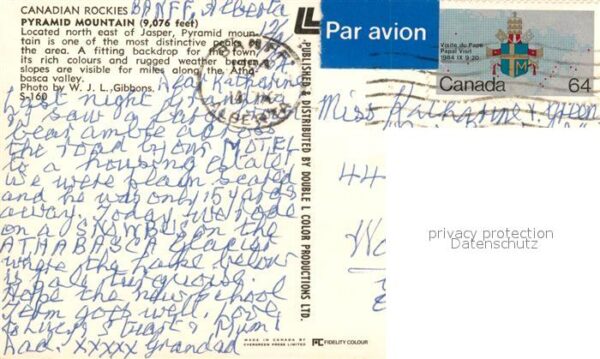 CANADIAN ROCKIES
PYRAMID MOUNTAIN (9,076 feet)
Located north east of Jasper, Pyramid moun-
tain is one of the most distinctive peaks in
the area. A fitting backdrop for the town,
its rich colours and rugged weather beaten
slopes are visible for miles along the Atha-
basca valley.
Photo by W. J. L. Gibbons.
S-160
BANFF, Alberta
Dear Katharine
Last night
saw a large
bear amble across
the road by our MOTEL
to a housing estate
we were plain scared
and he was only 15 yards
away. Today we rode
on a SNOWBUS on the
ATHABASCA Glacier
where the lake below
is pale turquoise.
Hope the new school
term goes well. Love
to Lucy, Stuart & Mum
Dad. XXXXX Grandad
PUBLISHED & DISTRIBUTED BY DOUBLE L COLOR PRODUCTIONS LTD.
MADE IN CANADA BY
EVERGREEN PRESS LIMITED
FIDELITY COLOUR
Par avion
BANFF
ALBERTA
Visite du Pape
Papal Visit
1984 IX 9-20
Canada 64
Miss Katharine
44
privacy protection
Datenschutz